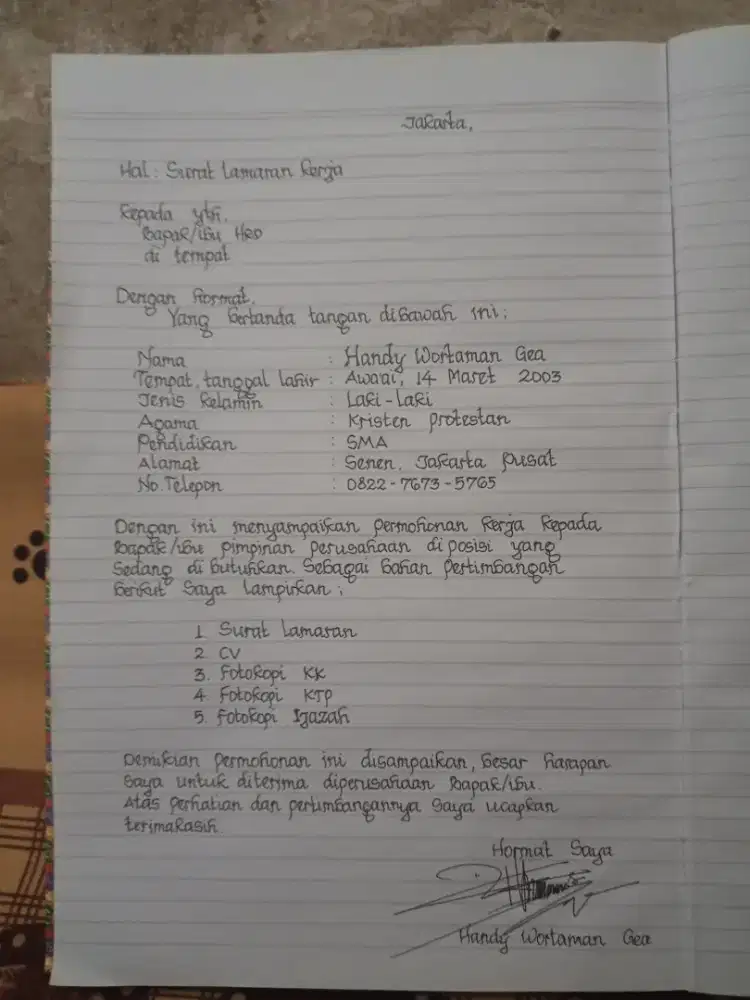 Jakarta,
Hal : Surat Lamaran Kerja
Kepada yth,
Bapak/ibu HRD
di tempat
Dengan hormat,
Yang bertanda tangan dibawah ini :
Nama : Handy Wortaman Gea
Tempat, tanggal lahir : Awaai, 14 Maret 2003
Jenis kelamin : Laki - Laki
Agama : Kristen protestan
Pendidikan : SMA
Alamat : Senen, Jakarta pusat
No. Telepon : 0822 - 7673 - 5765
Dengan ini menyampaikan permohonan kerja kepada
Bapak/ibu pimpinan perusahaan diposisi yang
Sedang di butuhkan. Sebagai bahan pertimbangan
berikut Saya Lampirkan :
1 Surat Lamaran
2 CV
3. Fotokopi KK
4 Fotokopi KTP
5. Fotokopi Ijazah
Demikian permohonan ini disampaikan, besar harapan
Saya untuk diterima diperusahaan Bapak/ibu.
Atas perhatian dan pertimbangannya Saya ucapkan
terimakasih.
Hormat Saya
Handy Wortaman Gea